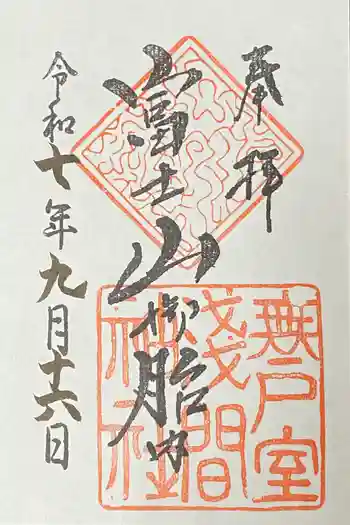 奉拝
富士山御胎内
無戸室
浅間
神社
令和七年九月十六日